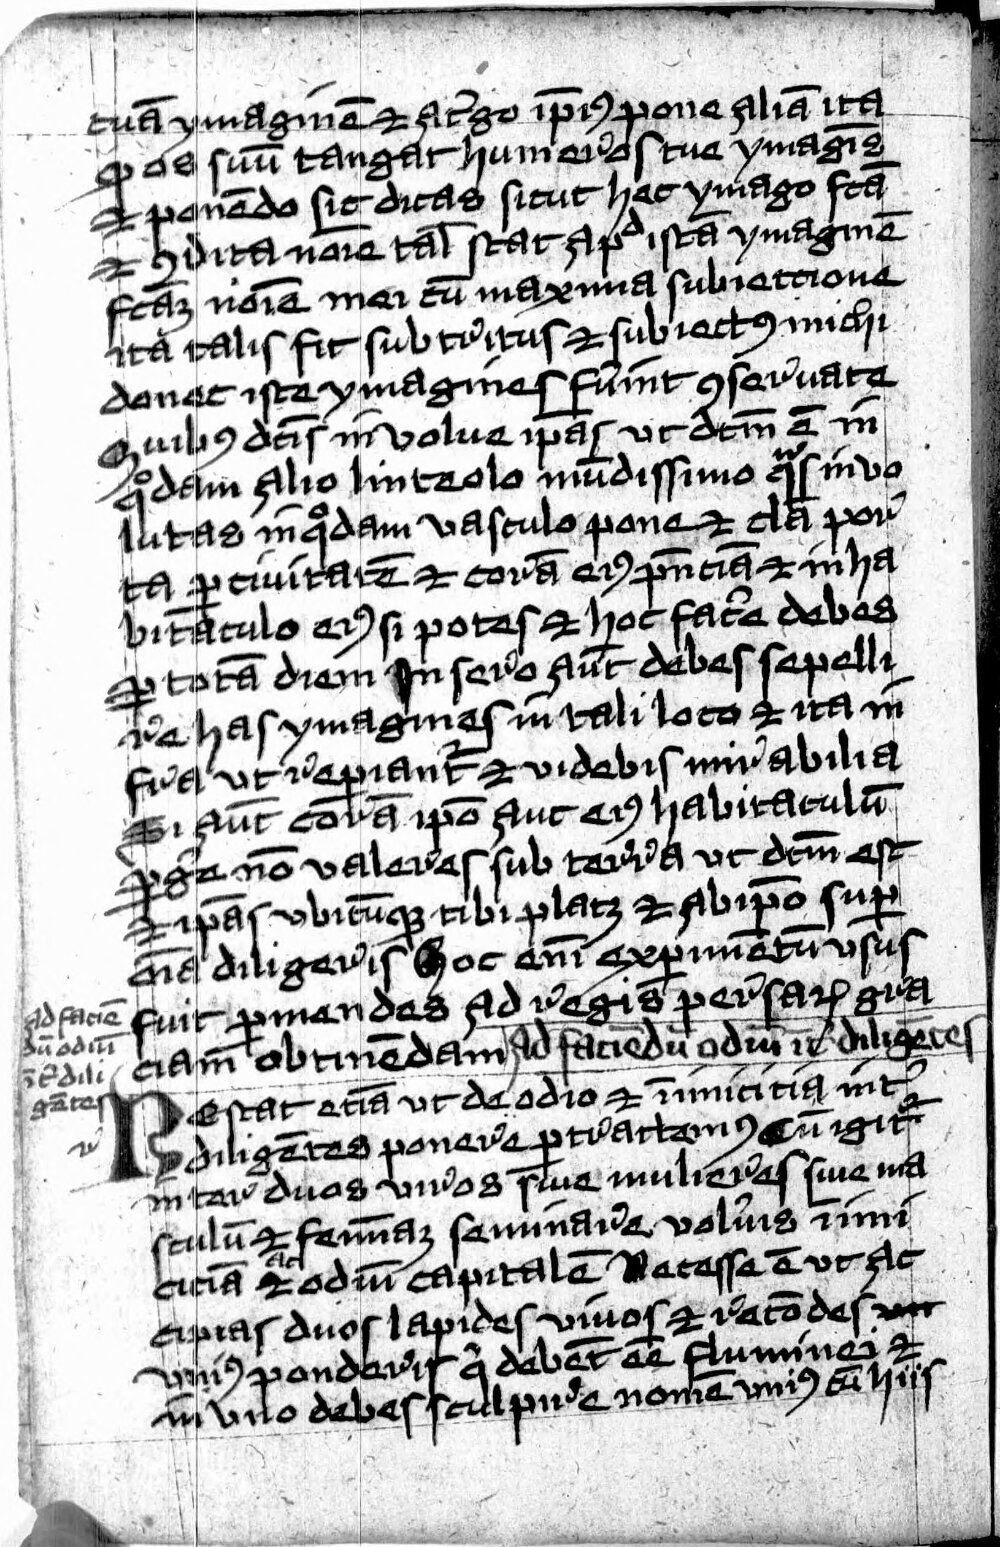 tuã ymaginẽ ⁊ at̉go ip̃iꝰ pone aliã ita
ꝙ os suũ tangat humeros tue ymagĩs
⁊ ponẽdo sic dicas sicut hec ymago fcã
⁊ ꝯdita noĩe tal̃ stat apᵈ istã ymaginẽ
fcãꝫ noĩe mei cũ maxima subieccione
ita talis sit subt̉ritus ⁊ subiectꝰ michi
donec iste ymagines fũint ꝯseruate
Quibꝰ dcĩs inuolue ip̃as ut dcm̃ ẽ in
qᵒdam alio linteolo mũdissimo qᵃs inuo
lutas in qᵒdam vasculo pone ⁊ clã por
ta ꝑ ciuitatẽ ⁊ corã eiꝰ pñciã ⁊ in ha
bitaculo eiꝰ si potes ⁊ hoc fac̉e debes
ꝑ totã diem In sero aũt debes sepelli
re has ymagines in tali loco ⁊ ita in
fra ut reꝑiant̉ ⁊ videbis mirabilia
Si aũt corã ip̃o aut eiꝰ habitaculũ
ꝑg̉e nõ valeres sub terra ut dcm̃ est
⁊ ip̃as vbicũqꝫ tibi placꝫ ⁊ ab ip̃o suꝑ
oĩa diligeris Hoc enĩ exꝑimẽtũ vsus
fuit ꝑmendes ad regis ꝑersaꝝ gra
ciam obtinẽdam Ad faciẽdũ odiũ int̉ diligẽtes
Ad faciẽ
dũ odiũ
ĩt̉ dili
gẽtes
r
Restat eciã ut de odio ⁊ inimicitia int̉
diligẽtes ponere ꝑtractemꝰ Cũ igit̉
inter duos viros siue mulieres siue ma
sculũ ⁊ feminaꝫ seminare voluĩs inimi
citiã ⁊ ac odiũ capitalẽ Necesse ẽ ut ac
cipias duos lapides viuos ⁊ recõdes
vniꝰ ponderis q̃ debẽt eẽ fluminei ⁊
in vno debes sculpire nomẽ vniꝰ cũ hiis